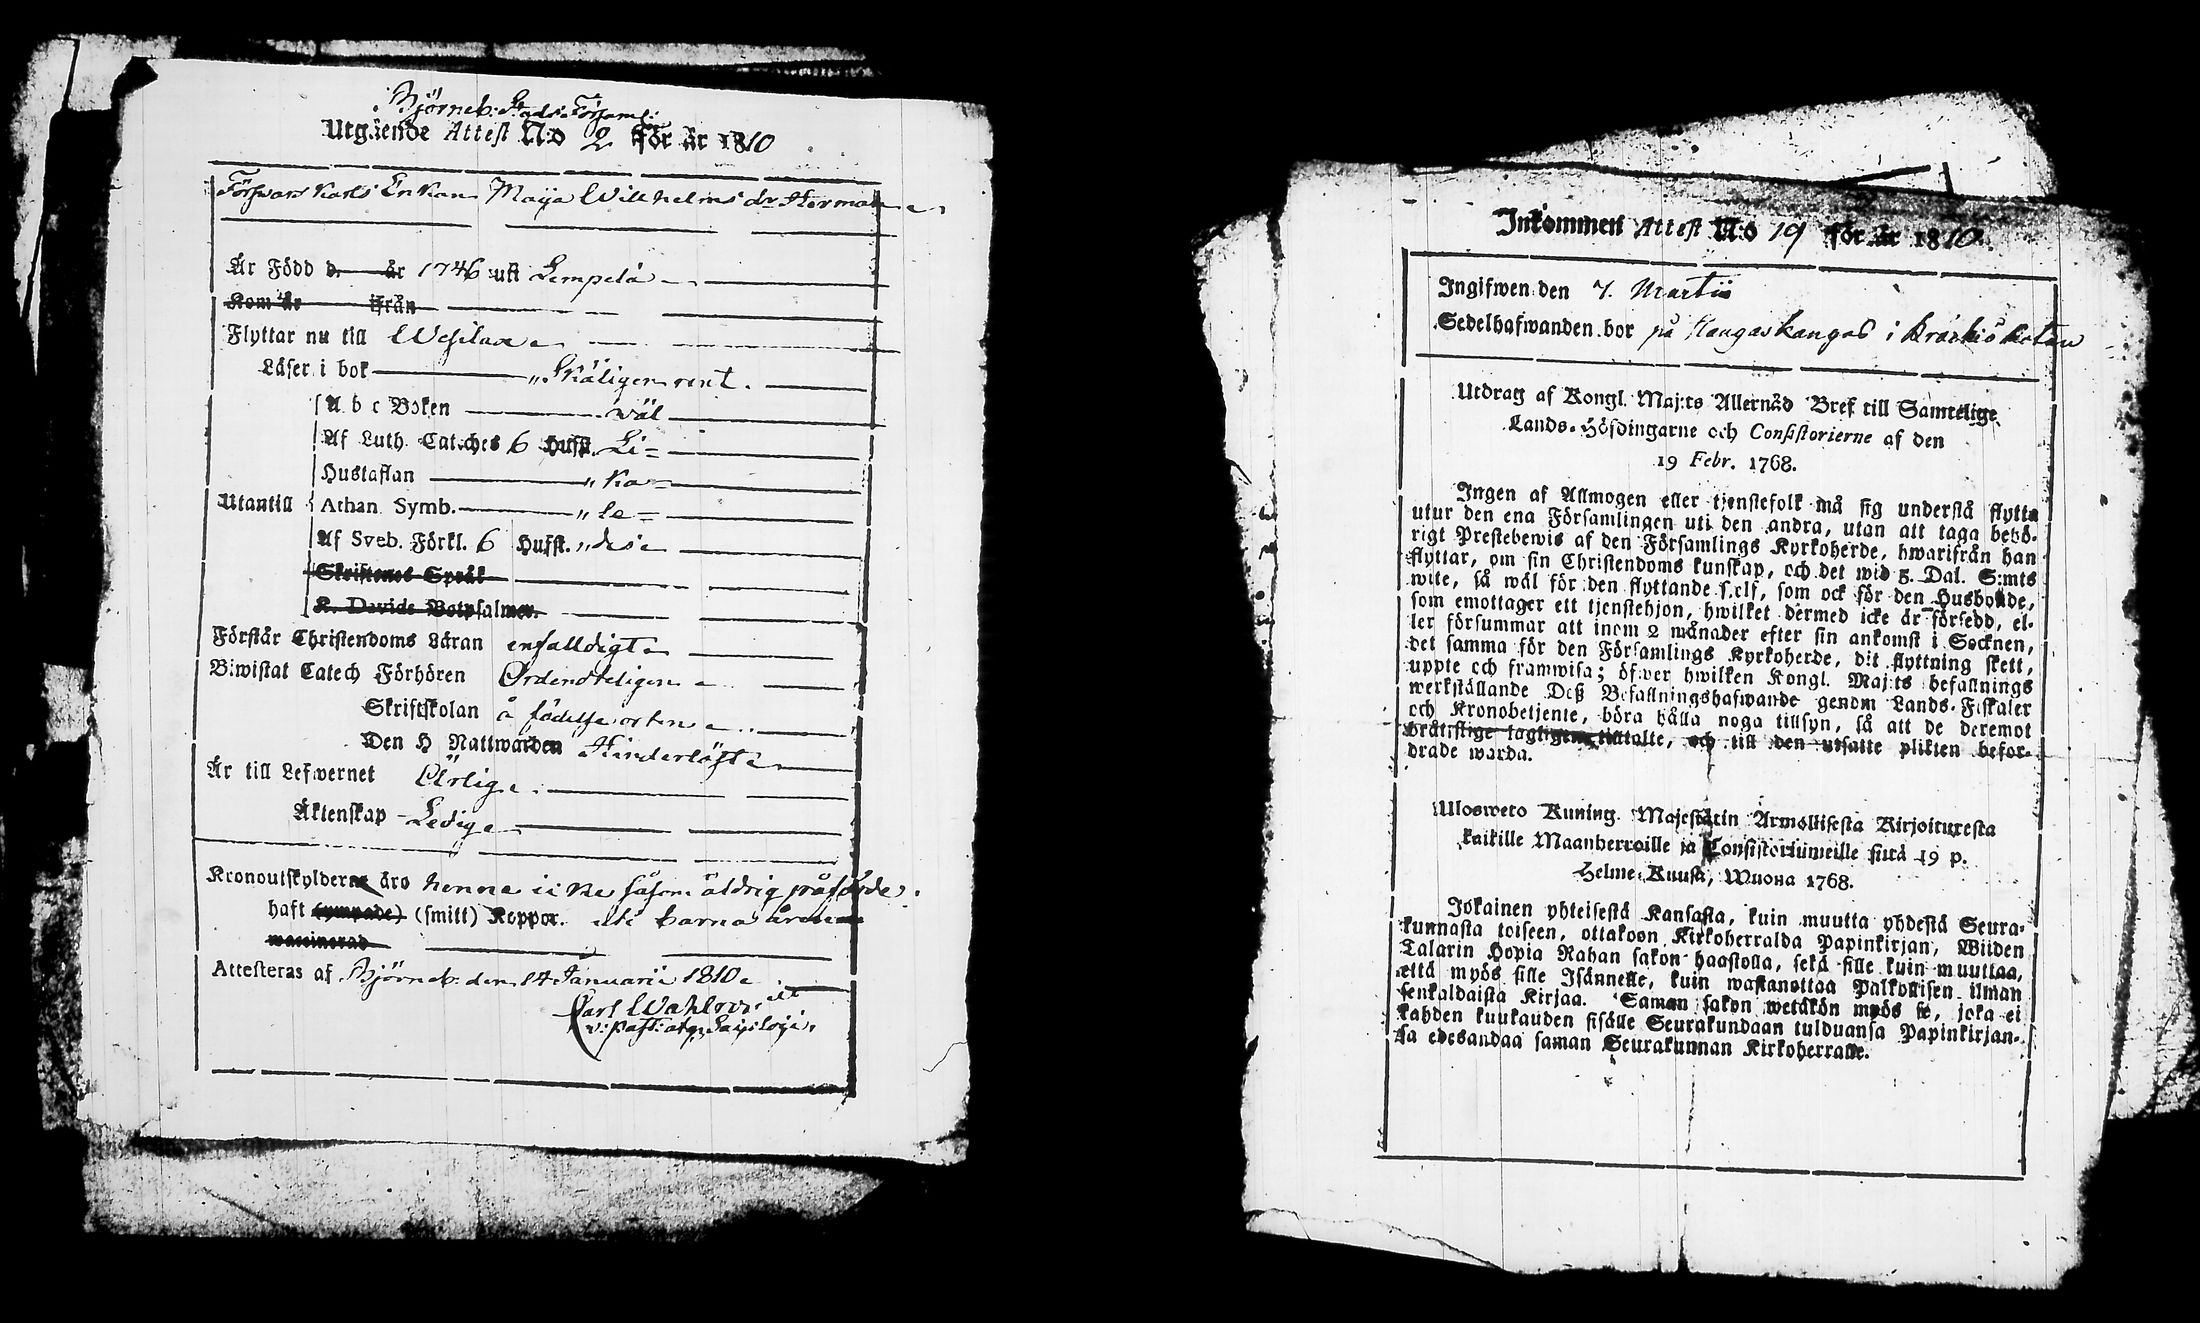 Björneb: Stads Församl:
Utgående Attest N:o 2 för år 1810
Försvars Karls Enkan Maija Willhelms dr Herman
År Född d. år 1746 uti Lempelä
Kom år ifrån
Flyttar nu till Wesilax
Läser i bok „Skäligen rent.
Utantill
A b c Boken wäl
Af Luth. Catches 6 Hufst. Li=
Hustaflan „ka=
Athan. Symb. „le=
Af Sveb. Förkl. 6 Hufst. „des
Skriftenes Språk
K. Davids Botpsalmer.
Förstår Christendoms Läran enfalldigt
Biwistat Catech Förhören Ordendteligen
Skriftskolan å födelse orten
Den H Nattwarden Hinderlöst
Är till Lefwernet Ärlig
Äktenskap Ledig
Kronoutskylderne äro henne icke såsom äldrig påförde.
haft (ympade) (smitt) Koppor. uti barna åren
waccinerad
Attesteras af Björneb: den 14 Januarii 1810
Carl Wahlroos
Inkommen Attest N:o 19 för år 1810.
Ingifwen den 7. Martii
Sedelhafwanden bor på Kangaskangas i
Utdrag af Kongl. Maj:ts Allernåd Bref till Samtelige
Lands-Höfdingarne och Consistorierne af den
19 Febr. 1768.
Ingen af Allmogen eller tjenstefolk må sig understå flytta
utur den ena Församlingen uti den andra, utan att taga behö-
rigt Prestebewis af den Församlings Kyrkoherde, hwarifrån han
flyttar, om sin Christendoms kunskap, och det wid 5. Dal. S:mts
wite, så wäl för den flyttande self, som ock för den Husbonde,
som emottager ett tjenstehjon, hwilket dermed icke är försedd, el-
ler försummar att inom 2 månader efter sin ankomst i Socknen,
det samma för den Församlings Kyrkoherde, dit flyttning skett,
uppte och framwisa; öfwer hwilken Kongl. Maj:ts befallnings
werkställande Deß Befallningshafwande genom Lands-Fiskaler
och Kronobetjente, böra hålla noga tillsyn, så att de deremot
bråtslige lagligen tilltalte, och till den utsatte plikten befor-
drade warda.
Ulosweto Kuning. Majestätin Armollisesta Kirjoituxesta
kaikille Maanherroille ja Consistoriumeille siitä 19 p.
Helme-Kuusa, Wuona 1768.
Jokainen yhteisestä Kansasta, kuin muutta yhdestä Seura-
kunnasta toiseen, ottakoon Kirkoherralda Papinkirjan, Wiiden
Talarin Hopia Rahan sakon haastolla, sekä sille kuin muuttaa,
että myös sille Isännelle, kuin wastanottaa Palkollisen ilman
senkaldaista Kirjaa. Saman sakon wetäkön myös se, joka ei
kahden kuukauden sisälle Seurakundaan tulduansa Papinkirjan-
sa edesandaa saman Seurakunnan Kirkoherralle.